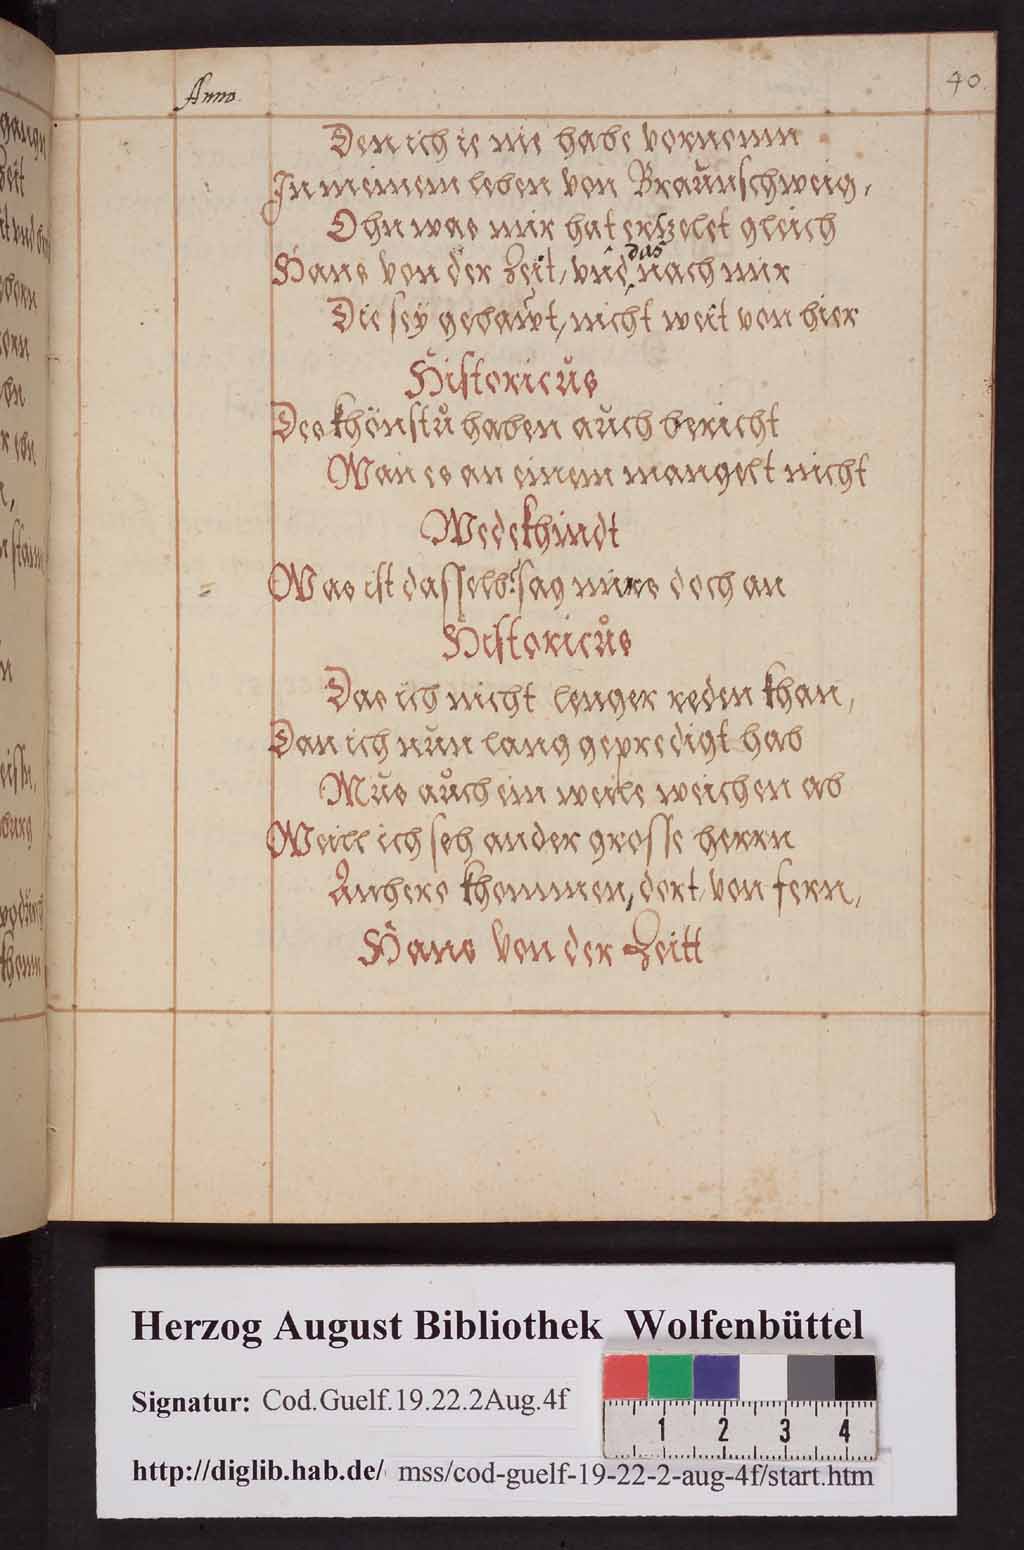 Anno.
40.
Den ich ie nie habe vornomn
In meinem leben von Braunschweig,
Ohn was mir hat ertzelet gleich
das
Hans von der Zeit, vnd nach mir
Die sey gebawt, nicht weit von hier
Historicus
Des khönstu haben auch bericht
Wan es an einem mangelt nicht
Wedekhindt
Was ist dasselb? sag mirs doch an
Historicus
Das ich nicht lenger reden khan,
Dan ich nun lang gepredigt hab
Mus auch ein weile weichen ab
Weill ich seh ander grosse herrn
Anhero khommen, dort von fern,
Hans von der Zeitt
Herzog August Bibliothek Wolfenbüttel
Signatur: Cod.Guelf.19.22.2Aug.4f
1 2 3 4
http://diglib.hab.de/ mss/cod-guelf-19-22-2-aug-4f/start.htm